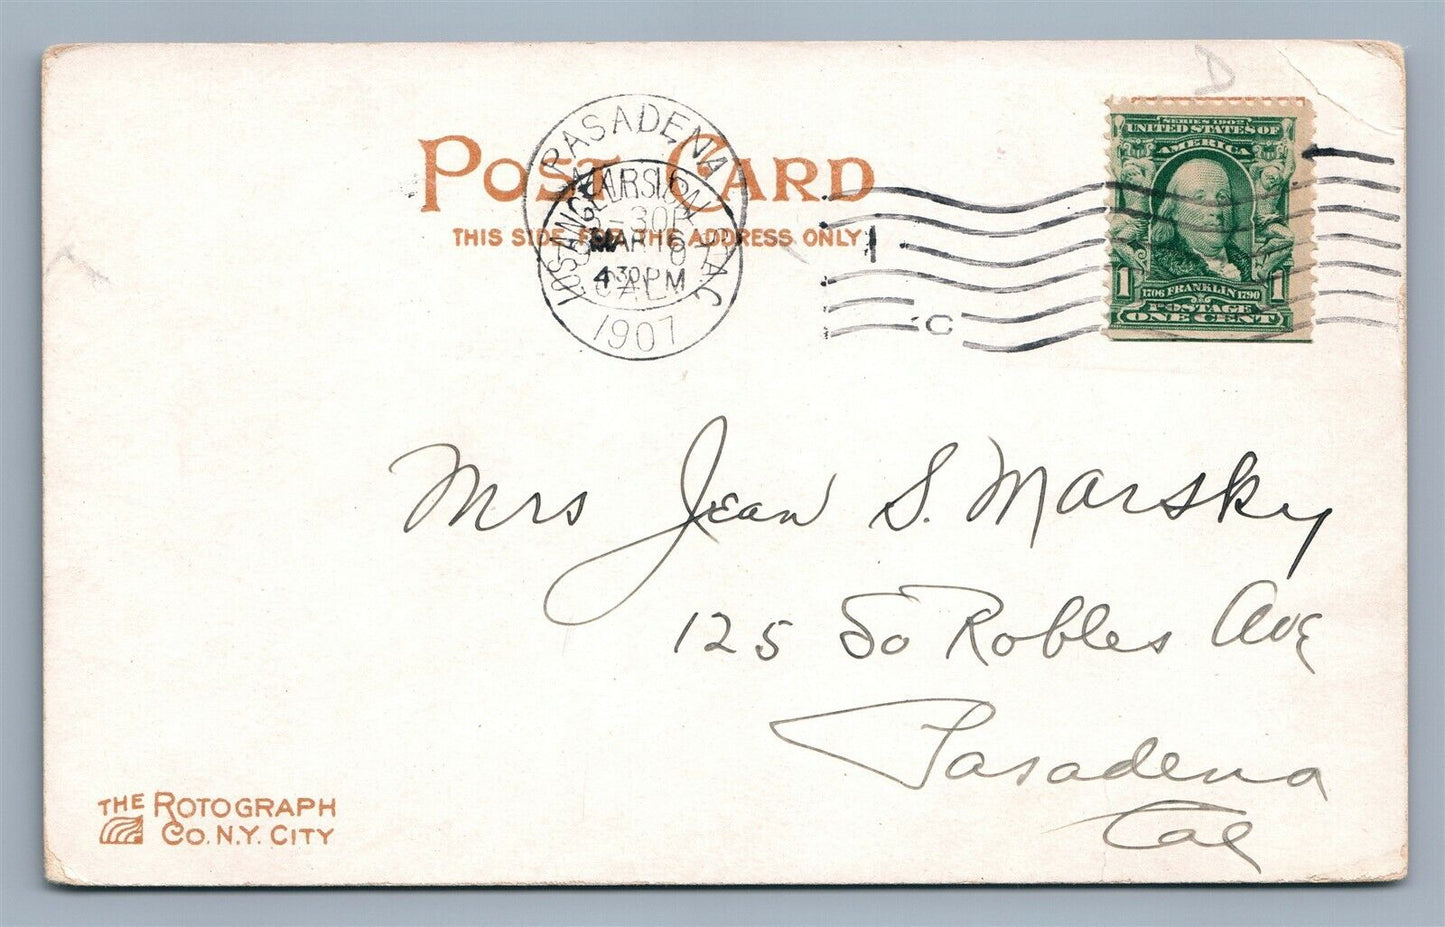 POST CARD
THIS SIDE FOR THE ADDRESS ONLY
PASADENA
MAR 16
4 30 PM
CAL
1907
C
SERIES 1902
UNITED STATES OF
AMERICA
1 1706 FRANKLIN 1790 1
POSTAGE
ONE CENT
Mrs Jean S. Marsky
125 So Robles Ave
Pasadena
Cal
THE ROTOGRAPH
CO. N.Y. CITY